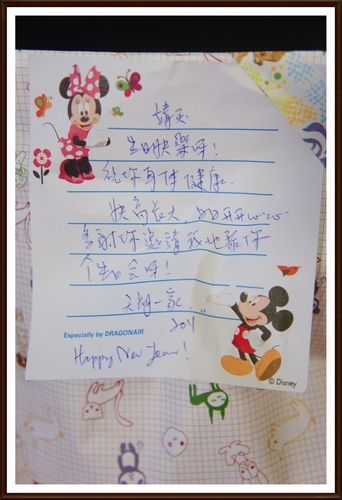 生日快樂呀!
祝你身体健康.
快高長大,
多謝你邀請我地黎你
個生日会呀!
一家
2011
Especially by DRAGONAIR
Happy New Year!
© Disney